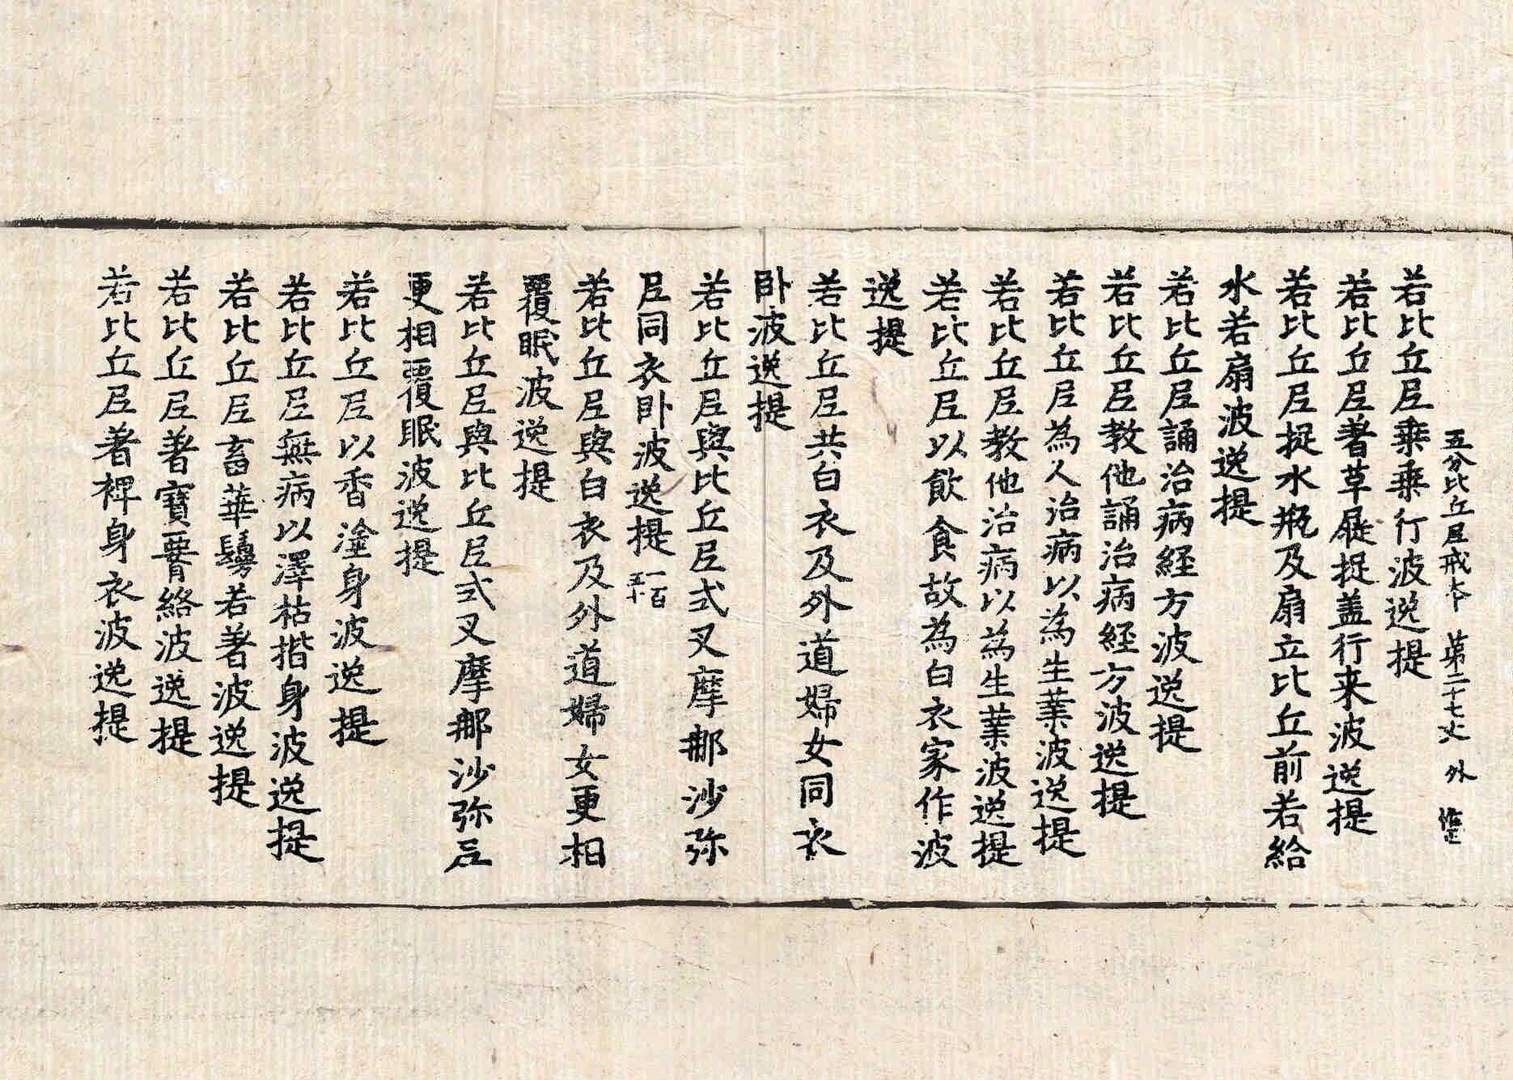 五分比丘尼戒本 第二十七丈 外
若比丘尼乗乗行波逸提
若比丘尼著草屣捉盖行来波逸提
若比丘尼捉水瓶及扇立比丘前若給
水若扇波逸提
若比丘尼誦治病経方波逸提
若比丘尼教他誦治病経方波逸提
若比丘尼為人治病以為生業波逸提
若比丘尼教他治病以為生業波逸提
若比丘尼以飲食故為白衣家作波
逸提
若比丘尼共白衣及外道婦女同衣
卧波逸提
若比丘尼與比丘尼式叉摩那沙弥
尼同衣卧波逸提一百五十
若比丘尼與白衣及外道婦女更相
覆眠波逸提
若比丘尼與比丘尼式叉摩那沙弥尼
更相覆眠波逸提
若比丘尼以香塗身波逸提
若比丘尼無病以澤枯揩身波逸提
若比丘尼畜華鬘若著波逸提
若比丘尼著寶瓔絡波逸提
若比丘尼著裨身衣波逸提